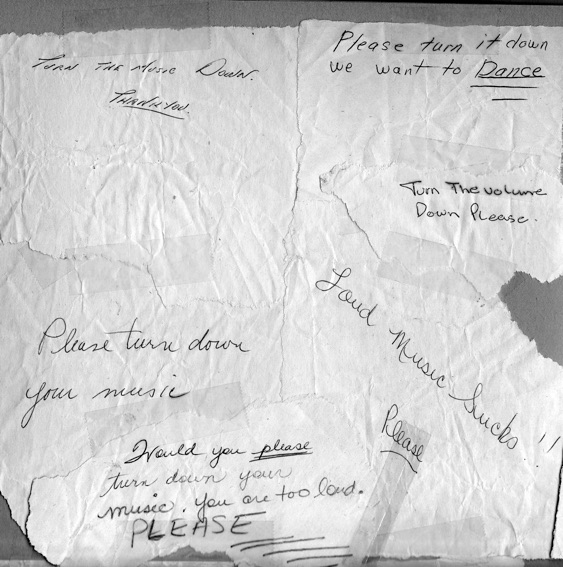 Turn The Music Down.
Thank You.
Please turn it down
we want to Dance
Turn The volume
Down Please.
Loud Music Sucks!!
Please
Please turn down
your music
Would you please
turn down your
music. You are too loud.
PLEASE